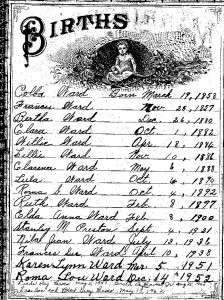 BIRTHS
Ward Born March 19, 1858
Frances Ward Nov 28, 1857
Bertha Ward Dec 26, 1880
Clara Ward Oct. 1, 1882
Willie Ward Apr 18, 1884
Lillie Ward Nov 10, 1886
Clarence Ward May 6, 1888
Lula Ward Oct 6, 1890
Roma S Ward Oct 4, 1892
Ruth Ward Feb 8, 1897
Elda Anna Ward Feb 8, 1900
Stanley M. Preston Sept 4, 1921
Jean Ward July 13, 1936
Frances Sue Ward April 10, 1938
Karen Lynn Ward Mar. 5, 1951
Romona Ward Dec. 14th 1953